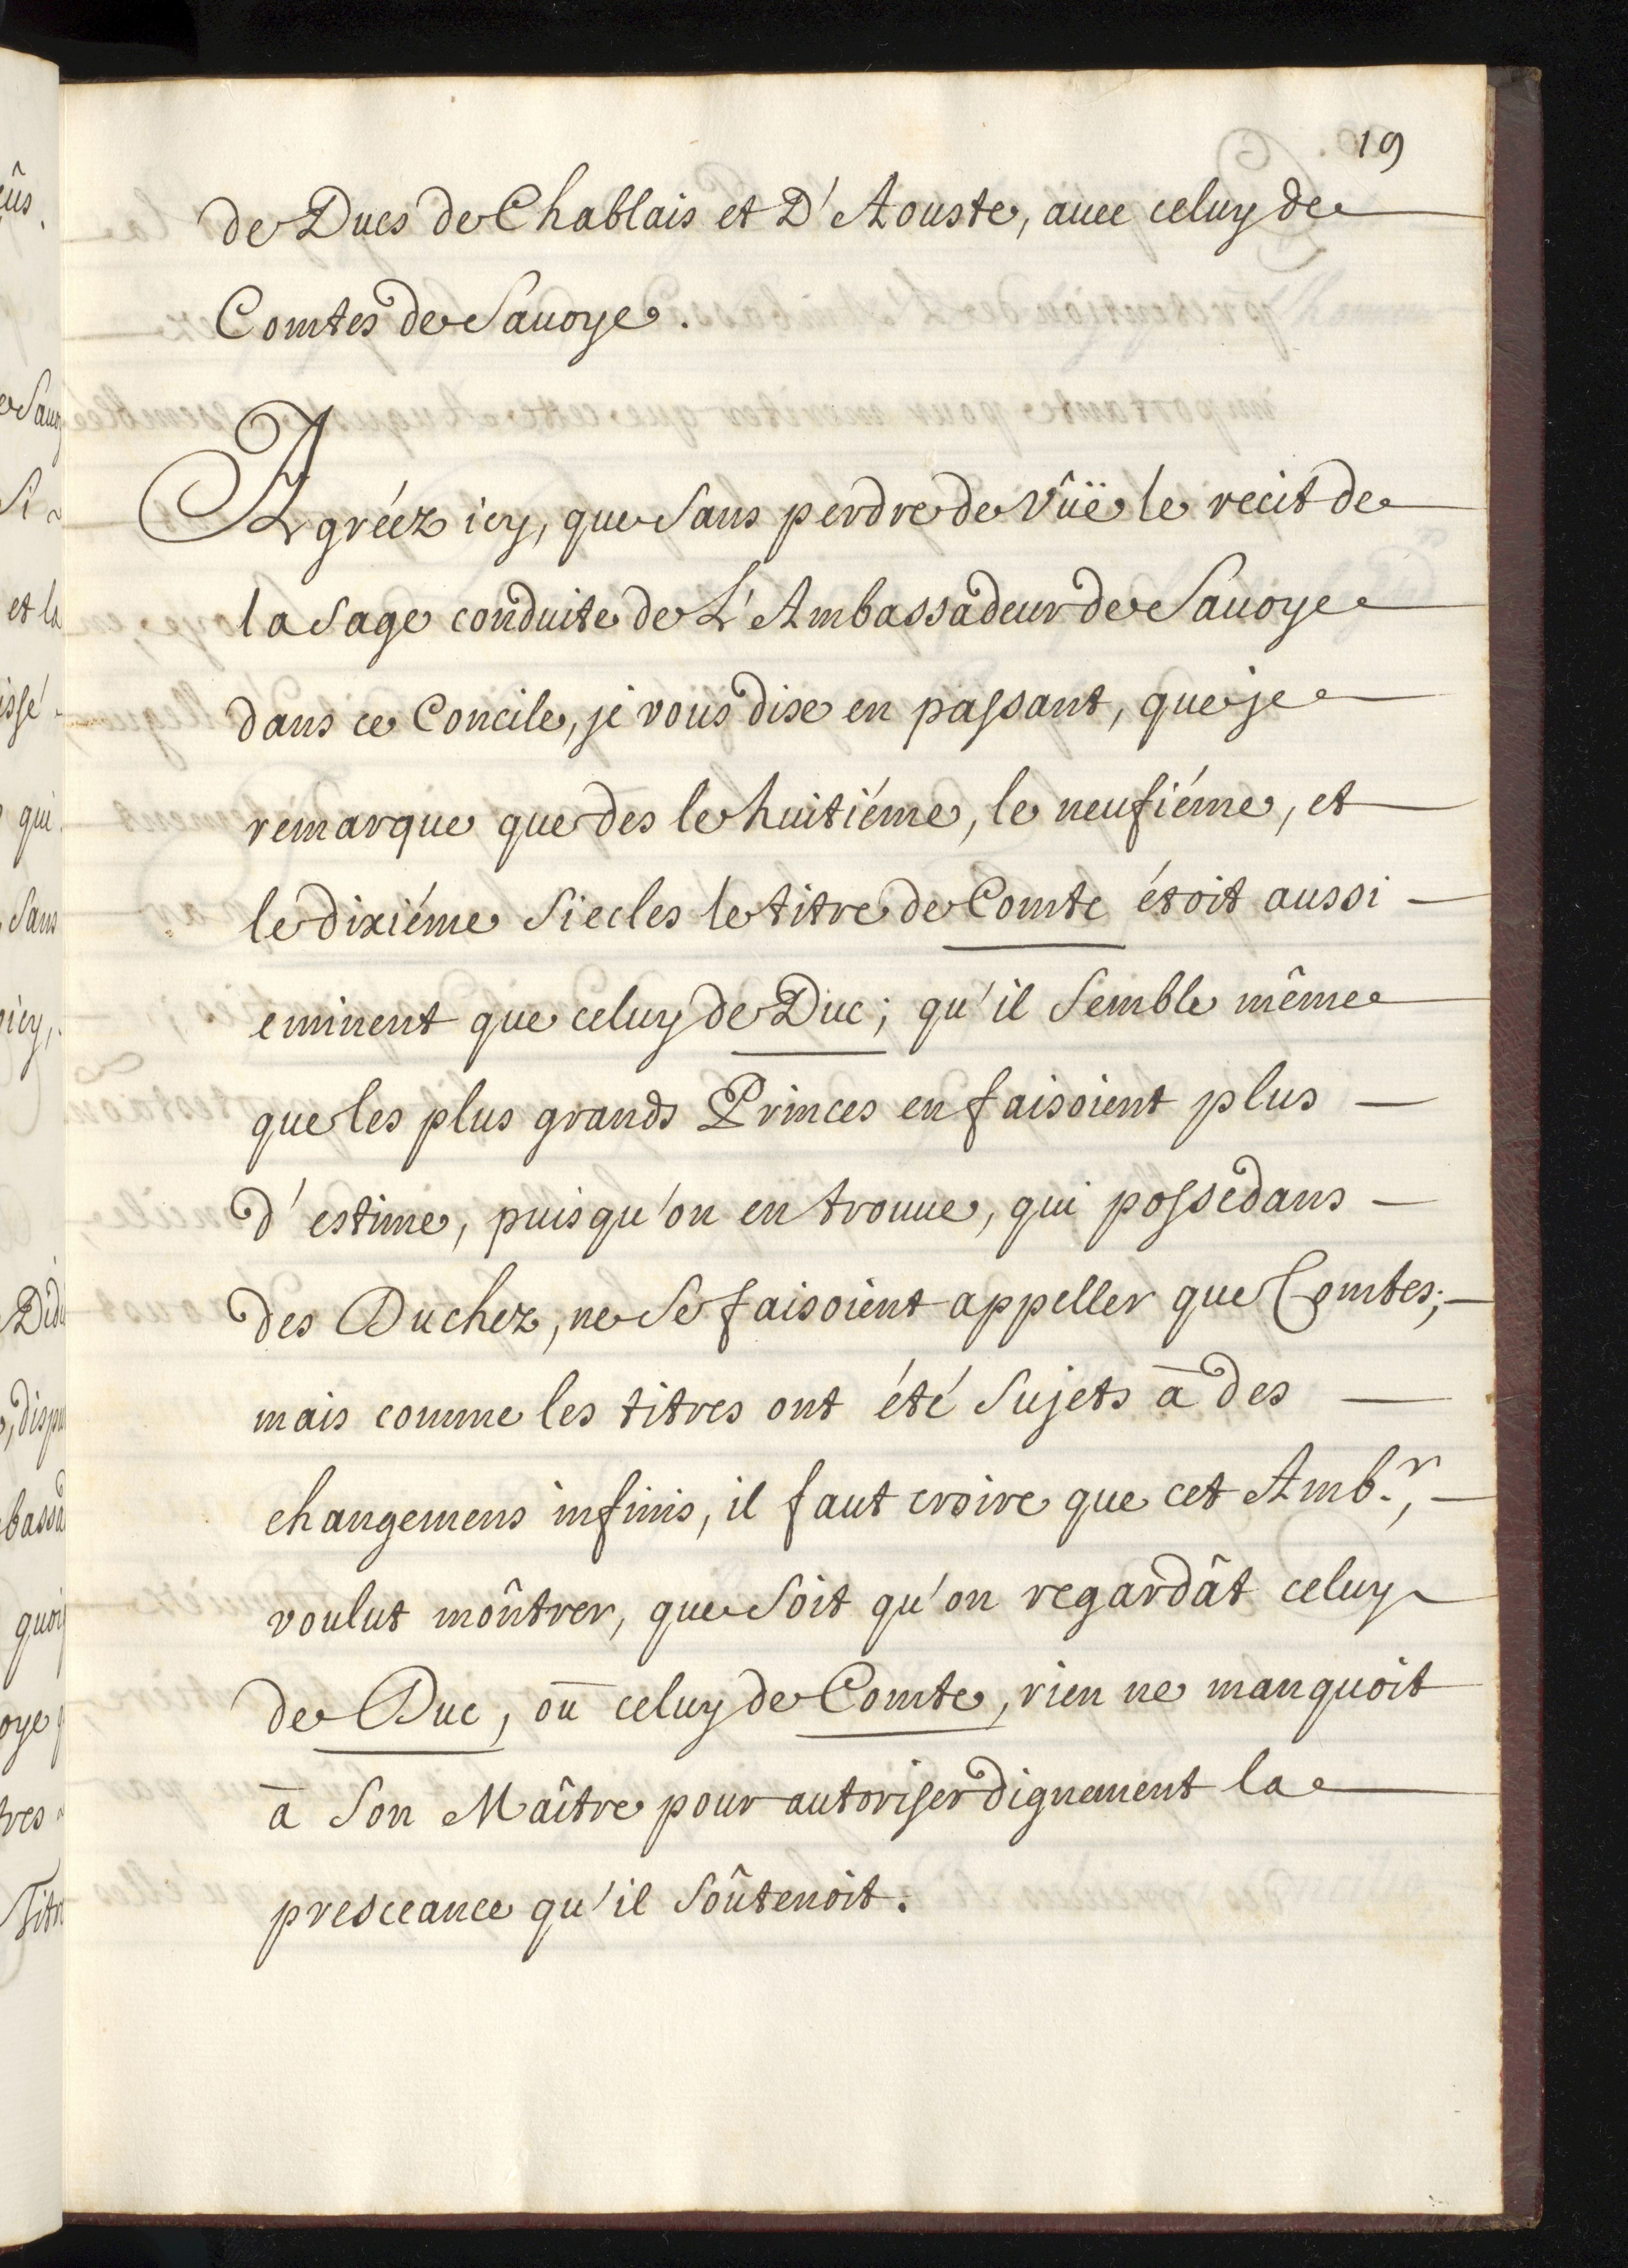 19
de Ducs de Chablais et D'Aouste, auec celuy de
Comtes de Sauoye.
Agréez icy, que sans perdre de vûë le recit de
la sage conduite de L'Ambassadeur de Sauoye
dans ce Concile, je vous dise en passant, que je
remarque que des le huitiéme, le neufiéme, et
le dixiéme siecles le titre de Comte étoit aussi —
eminent que celuy de Duc; qu'il semble même
que les plus grands Princes en faisoient plus —
d'estime, puisqu'on en trouue, qui possedans —
des Duchez, ne se faisoient appeller que Comtes; —
mais comme les titres ont été sujets à des —
changemens infinis, il faut croire que cet Amb.r, —
voulut môntrer, que soit qu'on regardât celuy
de Duc, oū celuy de Comte, rien ne manquoit
ā son Maître pour autoriser dignement la
presceance qu'il soûtenoit.